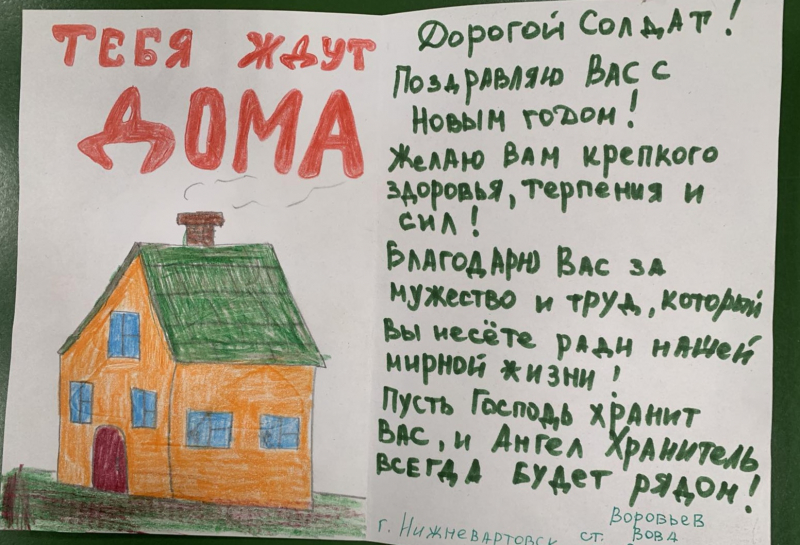 ТЕБЯ ЖДУТ
ДОМА
Дорогой Солдат!
Поздравляю Вас с
Новым годом!
Желаю Вам крепкого
здоровья, терпения и
сил!
Благодарю Вас за
мужество и труд, который
Вы несёте ради нашей
мирной жизни!
Пусть Господь хранит
Вас, и Ангел Хранитель
всегда будет рядом!
Воровьев
г. Нижневартовск ст. Вова